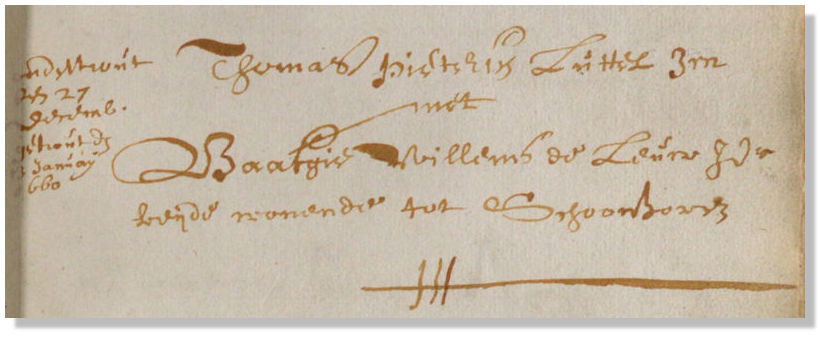 ondertrout
den 27
decemb.
getrout den
Januarij
660
Thomas Pieters Luttel Jm
met
Baatgie Willems de Leuw Jdr
beijde wonende tot Schoonhoven